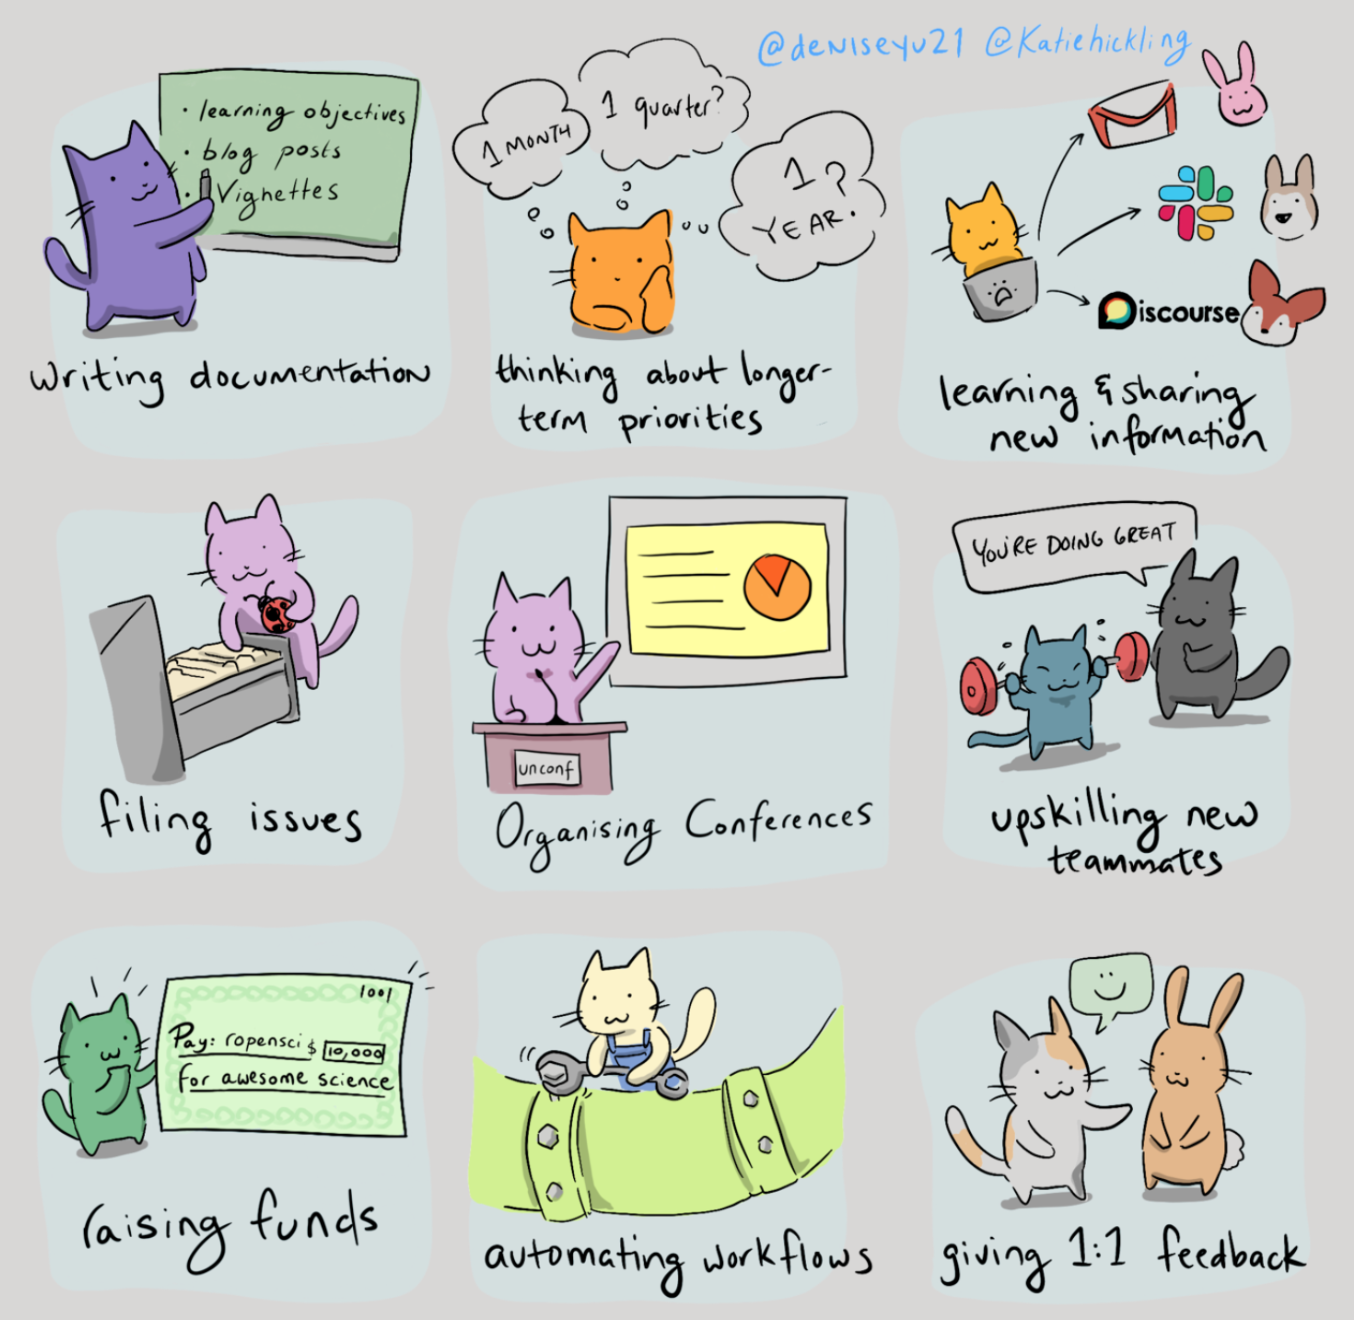 @deniseyu21 @Katiehickling
• learning objectives
• blog posts
• Vignettes
writing documentation
1 MONTH
1 quarter?
1 YEAR?.
thinking about longer-
term priorities
Discourse
learning & sharing
new information
filing issues
unconf
Organising Conferences
YOU'RE DOING GREAT
upskilling new
teammates
1001
Pay: ropensci $ 10,000
for awesome science
raising funds
automating workflows
giving 1:1 feedback